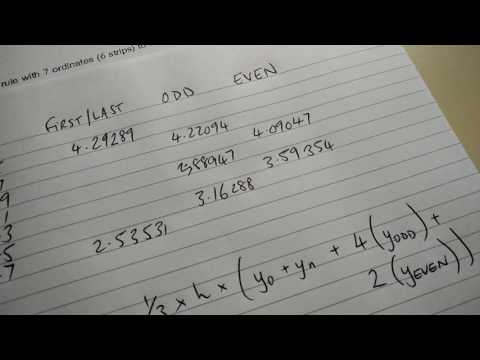 rule with 7 ordinates (6 strips) to
FIRST/LAST ODD EVEN
4.29289 4.22094 4.09047
3.88947 3.59354
3.16288
2.53531
9
1
.3
5
.7
1/3 × h × (y0 + yn + 4(yODD) +
2(yEVEN))